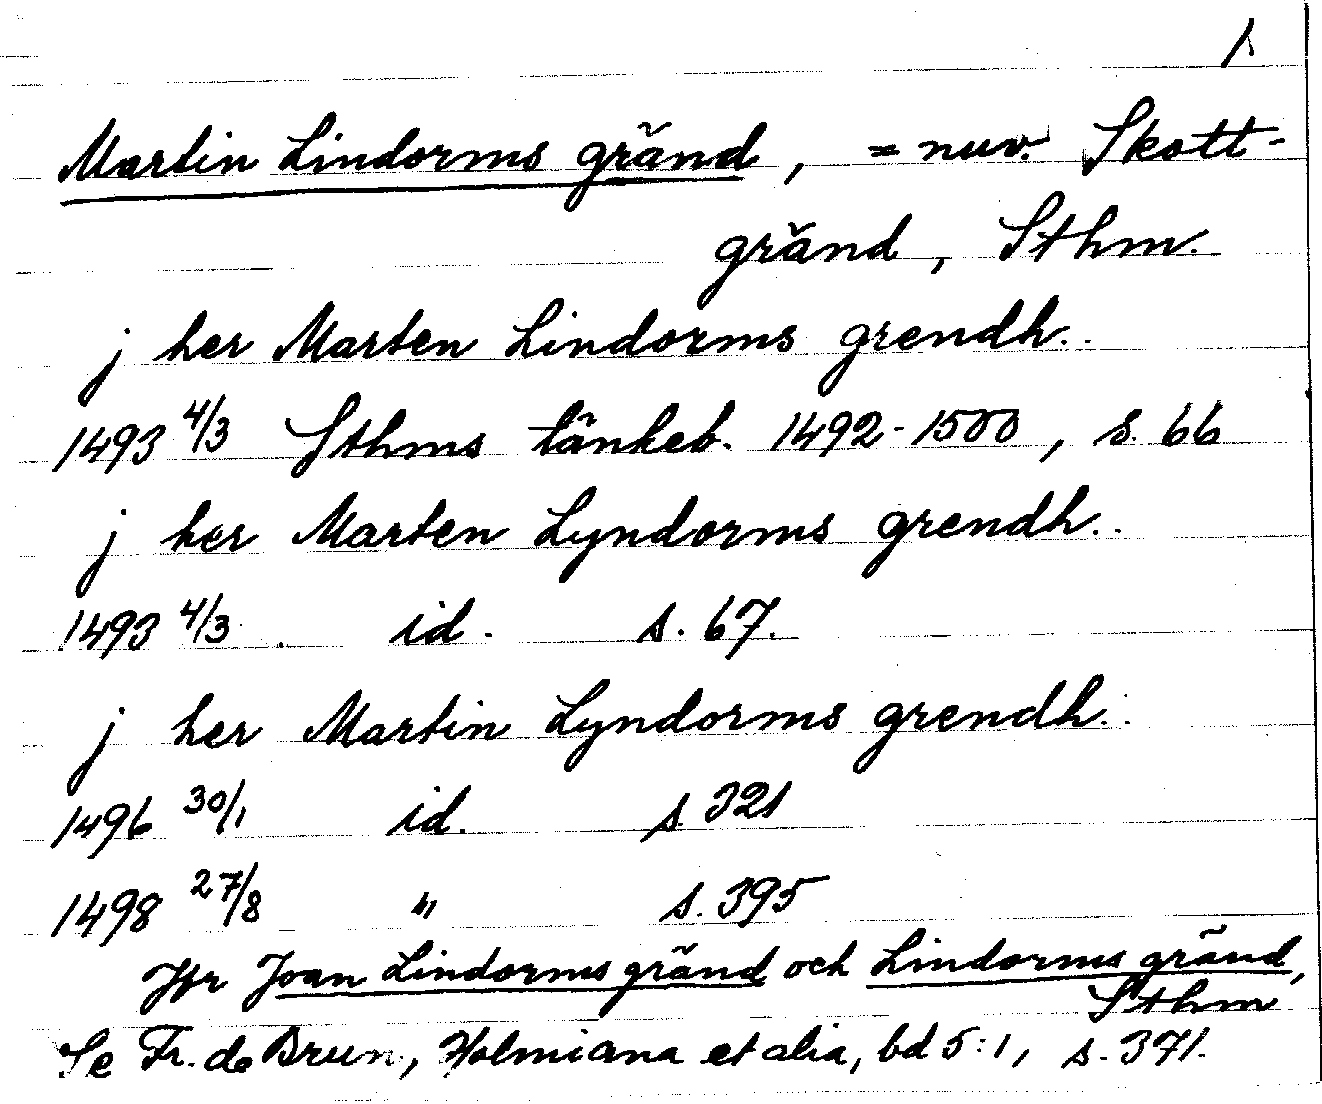 1
Martin Lindorms gränd, = nuv. Skott-
gränd, Sthm.
j her Marten Lindorms grendh..
1493 4/3 Sthms tänkeb. 1492-1500, s. 66
j her Marten Lyndorms grendh..
1493 4/3. id. s. 67.
j her Martin Lyndorms grendh..
1496 30/1 id. s 321
1498 27/8 " s. 395
Jfr Joan Lindorms gränd och Lindorms gränd,
Sthm
Se Fr. de Brun, Holmiana et alia, bd 5:1, s. 371.